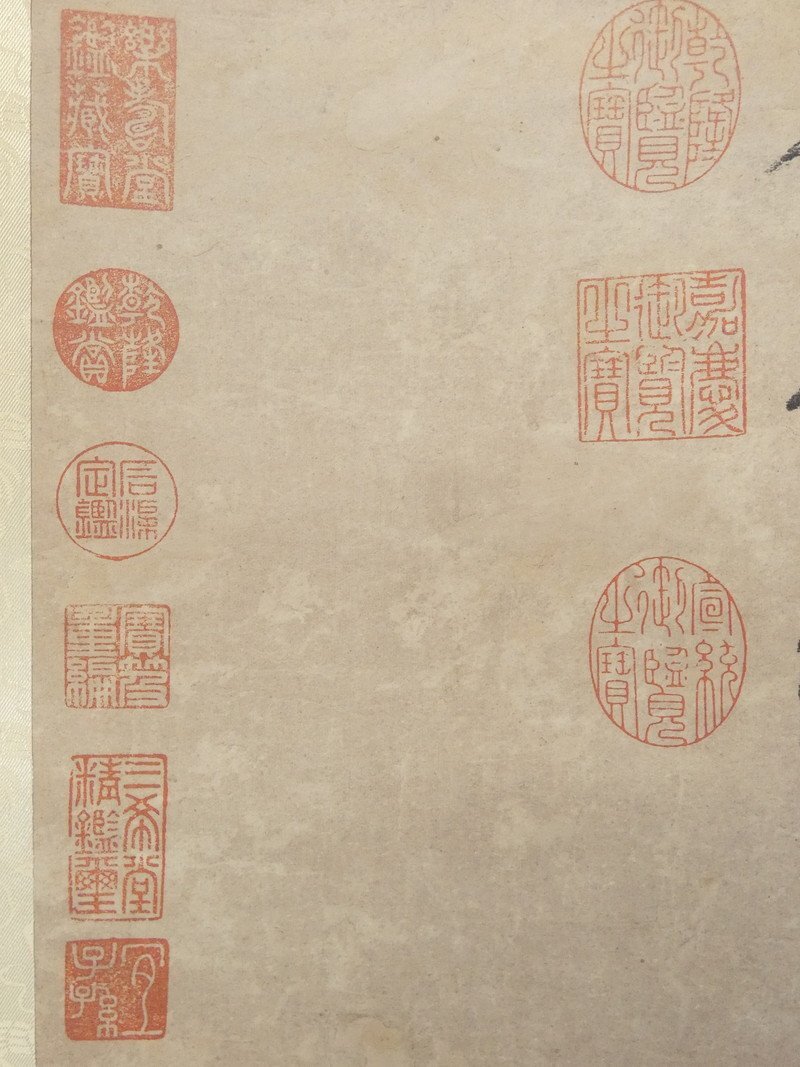 乾隆御覽之寶
嘉慶御覽之寶
宣統御覽之寶
樂壽堂鑑藏寶
乾隆鑑賞
石渠定鑑
寶笈重編
三希堂精鑑璽
宜子孫